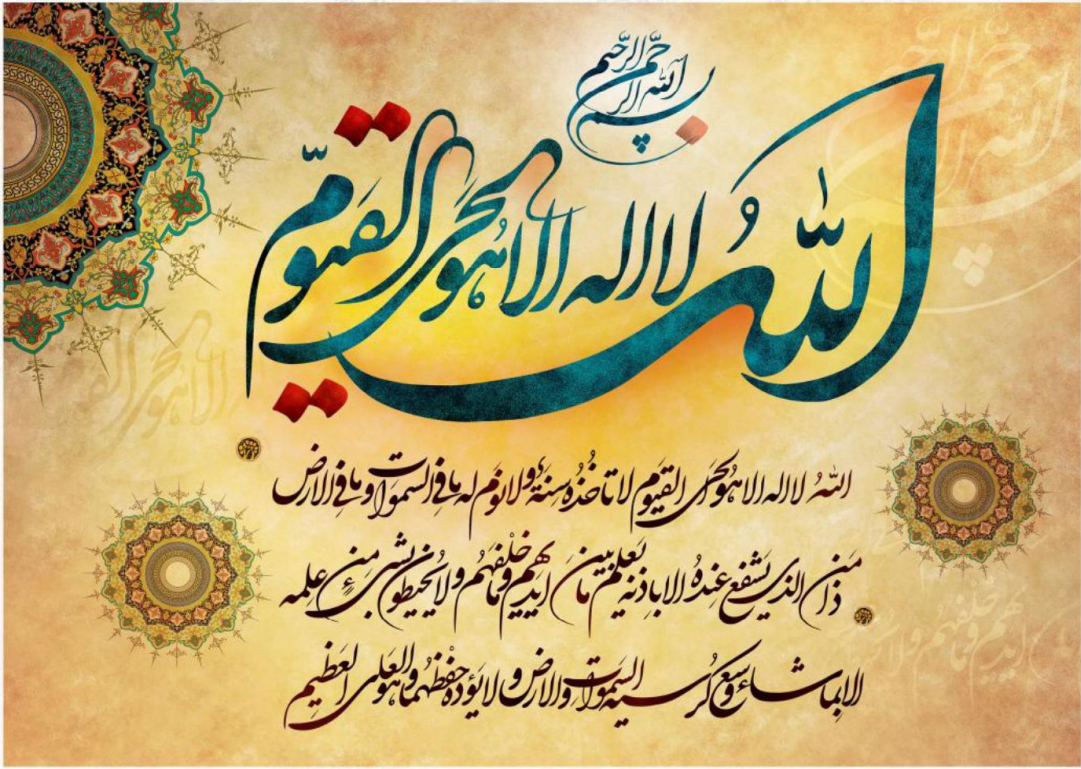 بسم الله الرحمن الرحیم
اللهُ لا اله الا هو الحی القیّوم
اللهُ لا اله الا هُو الحی القیوم لا تاخُذُه سِنَةٌ ولا نوم له ما فی السموات و ما فی الارض
مَن ذا الذی یشفع عِندهُ الا باذنه یَعلم ما بین ایدیهم و ما خلفهُم ولا یُحیطون بشیءٍ من علمه
الا بما شاء وسِع کُرسیه السموات والارض ولا یؤده حفظهُما و هو العلی العظیم